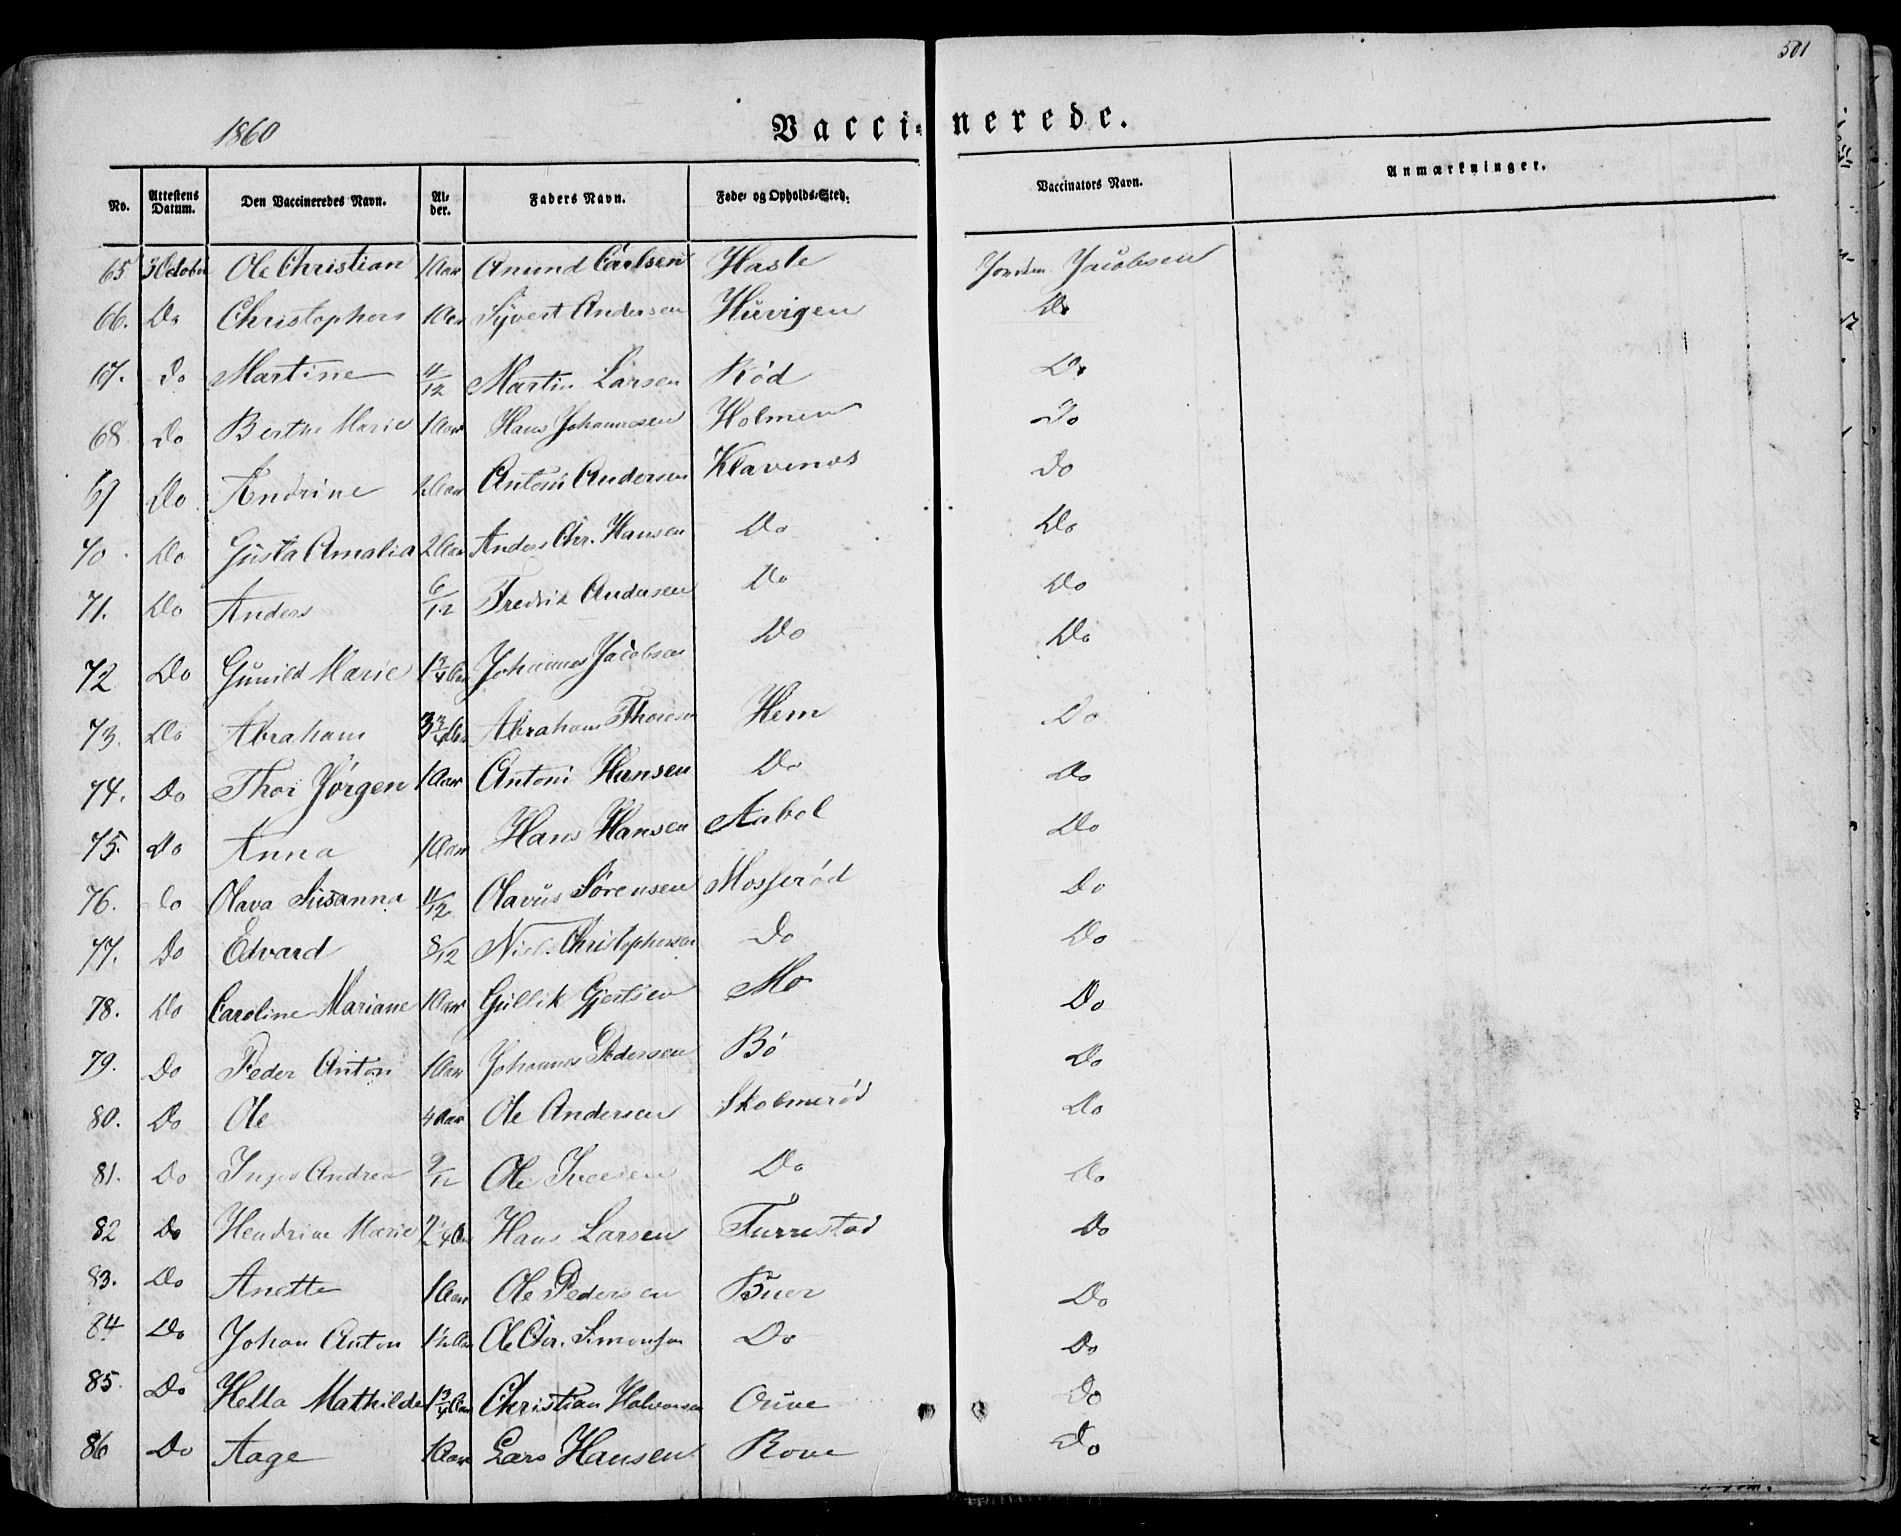 501
1860
Vaccinerede.
No. Attestens Datum. Den Vaccineredes Navn. Alder. Faders Navn. Føde- og Opholds-Sted. Vaccinators Navn. Anmærkninger.
65 October Ole Christian 1 Aar Anund Carlsen Hasle Jacobsen
66. Do Christophers 1 Aar Syvert Andersen Huvigen Do
67. Do Martine 11/12 Martin Larsen Rød Do
68. Do Berthe Marie 1 Aar Hans Johannesen Holmen Do
69 Do Andrine Aar Antoni Andersen Klavenes Do
70 Do Gusta Amalia 2 Aar Anders Chr. Hansen Do Do
71. Do Anders 6/12 Fredrik Andersen Do Do
72 Do Gunild Marie 1 3/4 Aar Johannes Jacobsen Do Do
73. Do Abraham 3 3/4 Aar Abraham Thoresen Hem Do
74. Do Thor Jørgen 1 Aar Antoni Hansen Do Do
75. Do Anna 1 Aar Hans Hansen Aabol Do
76. Do Olava Susanna 11/12 Olavus Sørensen Mosserød Do
77. Do Edvard 8/12 Niels Christophersen Do Do
78. Do Caroline Mariane 1 Aar Gullik Gjertsen Mo Do
79. Do Peder Anton 1 Aar Johannes Pedersen Bø Do
80. Do Ole 4 Aar Ole Andersen Skolmerød Do
81. Do Andrea 9/12 Ole Iversen Do Do
82 Do Hendrine Marie 2 1/4 Aar Hans Larsen Furrestad Do
83. Do Anette 1 Aar Ole Pedersen Buer Do
84 Do Johan Anton 1 1/2 Aar Ole Chr. Simonsen Do Do
85. Do Hella Mathilde 1 3/4 Aar Christian Halvorsen Ouve Do
86 Do Aage 1 Aar Lars Hansen Rove Do